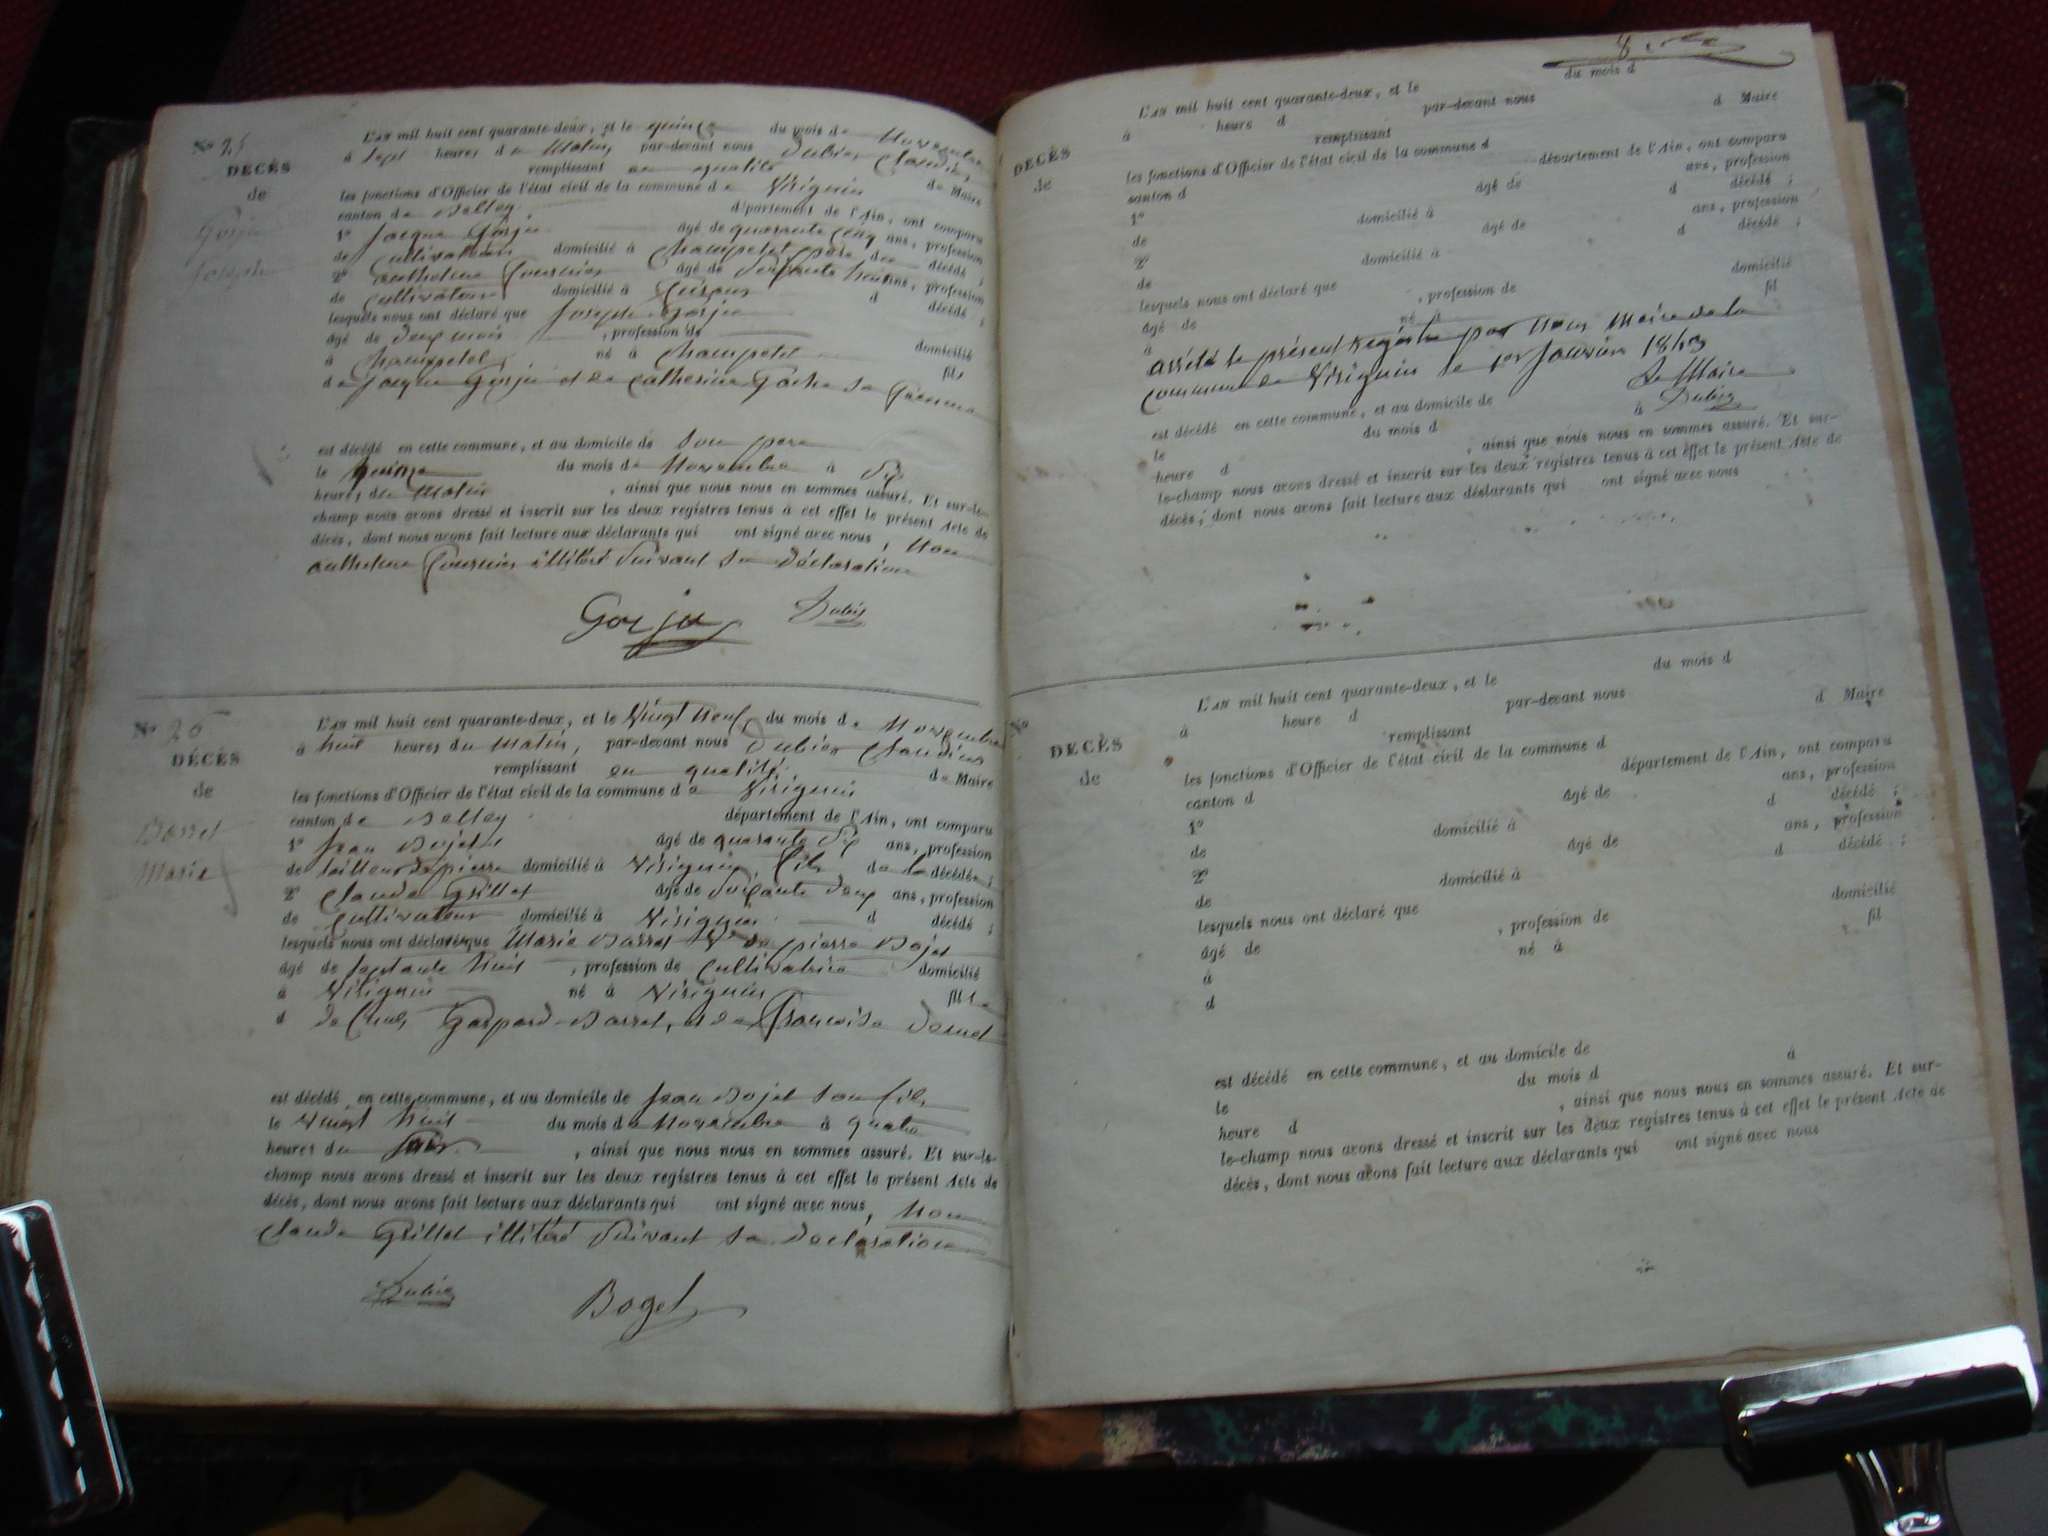 N° 25
DÉCÈS
de
Gorju
Joseph
L'AN mil huit cent quarante-deux, et le quinze du mois de Novembre
à Sept heures du Matin, par-devant nous Dubien Claudius
remplissant en qualité de Maire
les fonctions d'Officier de l'état civil de la commune de Virignin
canton de Belley, département de l'Ain, ont comparu
1° Jacque Gorju âgé de quarante Cinq ans, profession
de Cultivateur domicilié à Champetel père du décédé ;
2° anthelme Fournier âgé de Soixante ans, profession
de Cultivateur domicilié à d décédé ;
lesquels nous ont déclaré que Joseph Gorju
âgé de deux mois , profession de
à Champetel né à Champetel domicilié
fils
de Jacque Gorju et de Catherine Sa femme
est décédé en cette commune, et au domicile de Son père
le quinze du mois de Novembre à Six
heures du Matin , ainsi que nous nous en sommes assuré. Et sur-le-
champ nous avons dressé et inscrit sur les deux registres tenus à cet effet le présent Acte de
décès, dont nous avons fait lecture aux déclarants qui ont signé avec nous, Non
anthelme Fournier illitéré Suivant Sa Déclaration
Gorju Dubien
N° 26
DÉCÈS
de
Barret
Marie
L'AN mil huit cent quarante-deux, et le Vingt Neuf du mois de Novembre
à huit heures du Matin, par-devant nous Dubien Claudius
remplissant en qualité de Maire
les fonctions d'Officier de l'état civil de la commune de Virignin
canton de Belley département de l'Ain, ont comparu
1° Jean Bojet âgé de quarante Six ans, profession
de tailleur de pierre domicilié à Virignin, fils de la décédée ;
2° Claude Grillet âgé de Soixante deux ans, profession
de Cultivateur domicilié à Virignin d décédé ;
lesquels nous ont déclaré que Marie Barret Ve de pierre Bojet
âgé de Septante huit , profession de Cultivatrice domicilié
à Virignin né à Virignin fille
d de Gaspard Barret, et de Françoise
est décédé en cette commune, et au domicile de Jean Bojet Son fils
le Vingt huit du mois de Novembre à quatre
heures du Soir , ainsi que nous nous en sommes assuré. Et sur-le-
champ nous avons dressé et inscrit sur les deux registres tenus à cet effet le présent Acte de
décès, dont nous avons fait lecture aux déclarants qui ont signé avec nous, Non
Claude Grillet illitéré Suivant Sa Declaration
Dubien Boget
L'AN mil huit cent quarante-deux, et le du mois d
à heure d par-devant nous
remplissant d Maire
DÉCÈS
de
les fonctions d'Officier de l'état civil de la commune d
canton d département de l'Ain, ont comparu
1° âgé de ans, profession
de domicilié à d décédé ;
2° âgé de ans, profession
de domicilié à d décédé ;
lesquels nous ont déclaré que
âgé de , profession de domicilié
à né à fil
arrêté le présent Registre par Nous Maire de la
commune de Virignin le 1er Janvier 1843
Le Maire
Dubien
est décédé en cette commune, et au domicile de
le du mois d à
heure d , ainsi que nous nous en sommes assuré. Et sur-
le-champ nous avons dressé et inscrit sur les deux registres tenus à cet effet le présent Acte de
décès, dont nous avons fait lecture aux déclarants qui ont signé avec nous
N°
DÉCÈS
de
L'AN mil huit cent quarante-deux, et le du mois d
à heure d par-devant nous
remplissant d Maire
les fonctions d'Officier de l'état civil de la commune d
canton d département de l'Ain, ont comparu
1° âgé de ans, profession
de domicilié à d décédé ;
2° âgé de ans, profession
de domicilié à d décédé ;
lesquels nous ont déclaré que
âgé de , profession de domicilié
à né à fil
d
est décédé en cette commune, et au domicile de
le du mois d à
heure d , ainsi que nous nous en sommes assuré. Et sur-
le-champ nous avons dressé et inscrit sur les deux registres tenus à cet effet le présent Acte de
décès, dont nous avons fait lecture aux déclarants qui ont signé avec nous